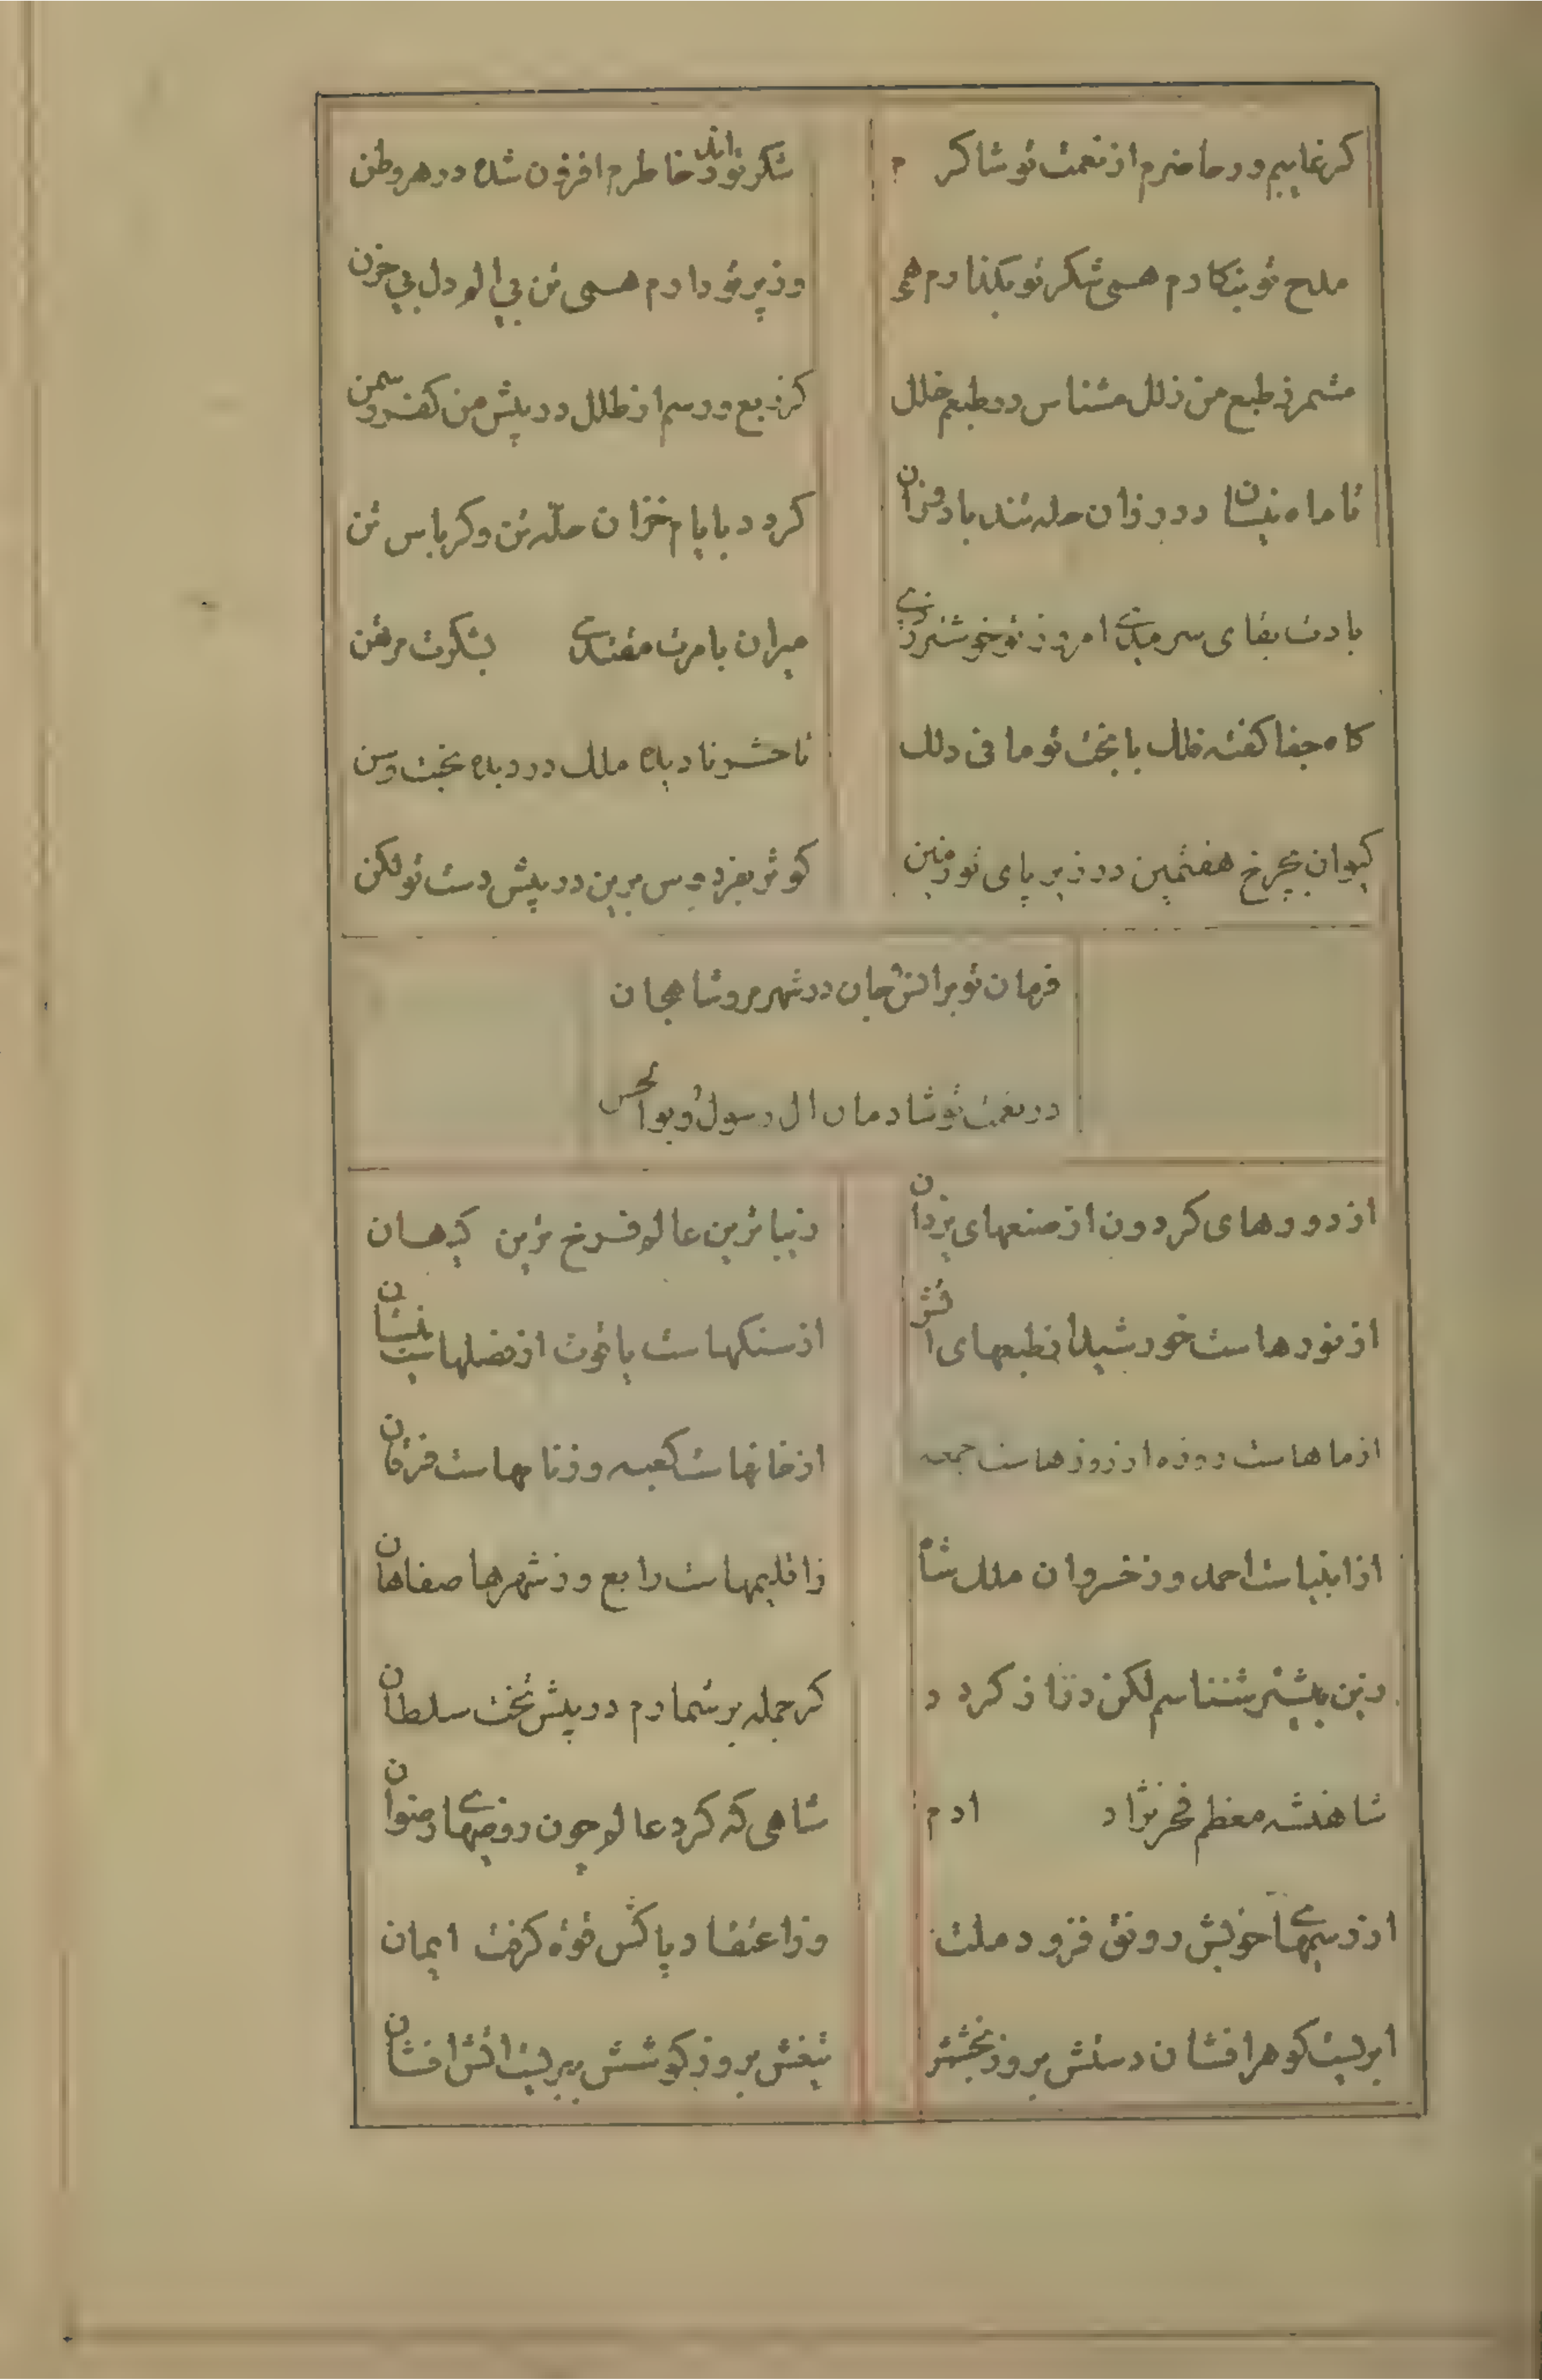 کر غایبم ور حاضرم از نعمت تو شاکرم
شکر تو اندر خاطرم افزون شده در هر وطن
مدح تو بنکارم همی شکر تو بکذارم همی
وز بر تو دارم همی تن بی الم دل بی حزن
مشمر ز طبع من زلل مشناس در طبعم خلل
کز ربع و رسم از طلل در پیش من کفت و سمن
تا ماه نیسان در رزان حله تند باد وزان
کردد بایام خزان حله تن و کرباس تن
بادت بقای سرمدی امروز تو خوشتر زدی
میران بامرت مقتدی بشکرت مرتهن
کاه جفا کفته فلک با بخت تو ما فی دلک
تا حشر نادیده ملک در دیده بختت وسن
کیوان بچرخ هفتمین در زیر پای تو زمین
کوثر بفردوس برین در پیش دست تو لکن
فرمان تو بر انس و جان در شهر مرو شاهجان
در نعمت تو شادمان ال رسول و بوالحسن
از دورهای کردون از صنعهای یزدان
زیباترین عالم فرخ ترین کیهان
از نورهاست خورشید از طبعهای اتش
از سنکهاست یاقوت از فصلهاست نیسان
از ماهاست روزه از روزهاست جمعه
از خانهاست کعبه وز نامهاست فرقان
از انبیاست احمد وز خسروان ملک شاه
ز اقلیمهاست رابع وز شهرها صفاهان
زین بیشتر شناسم لکن دراز کردد
کر جمله برشمارم در پیش تخت سلطان
شاهنشه معظم فخر نژاد ادم
شاهی که کرد عالم چون روضهای رضوان
از رسمهای خوبش رونق فزود ملت
وز اعتقاد پاکش قوه کرفت ایمان
ابریست کوهر افشان دستش بروز بخشش
تیغش بروز کوشش ببریست اتش افشان